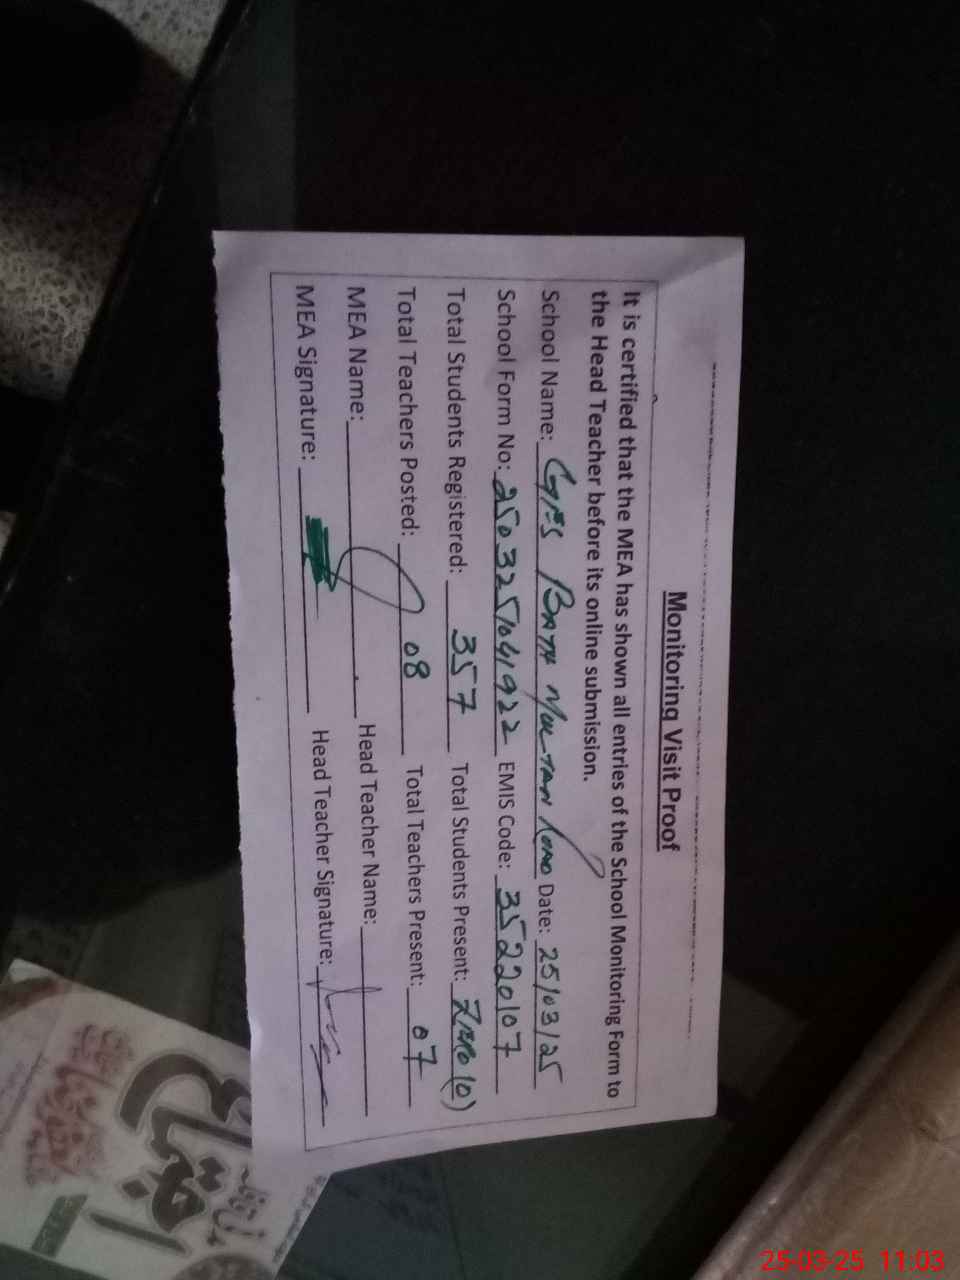 Monitoring Visit Proof
It is certified that the MEA has shown all entries of the School Monitoring Form to
the Head Teacher before its online submission.
School Name: GPS Multan Road Date: 25/03/25
School Form No: 250325104922 EMIS Code: 35220107
Total Students Registered: 357 Total Students Present: Zero (0)
Total Teachers Posted: 08 Total Teachers Present: 07
MEA Name: Head Teacher Name:
MEA Signature: Head Teacher Signature:
25-03-25 11:03